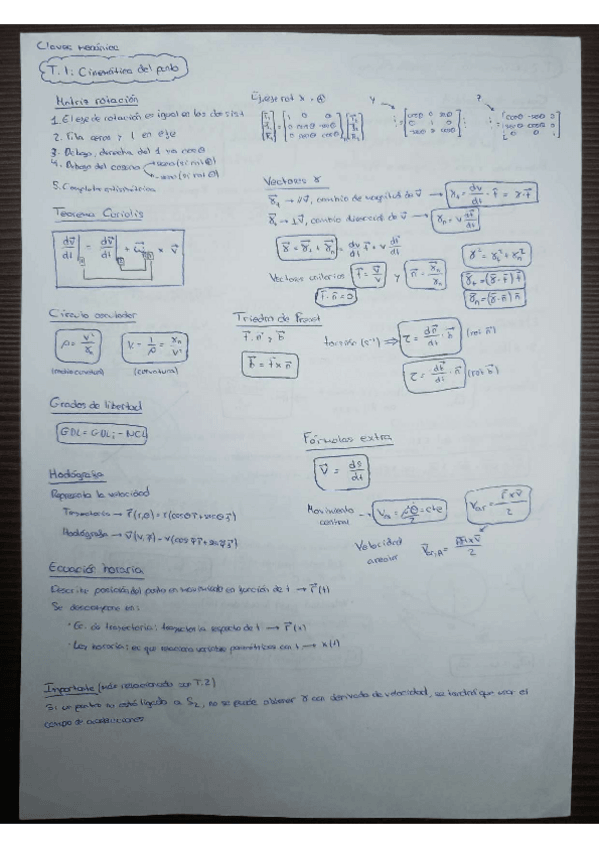 Claves mecánica
T.1: Cinemática del punto
Matriz rotación
1. El eje de rotación es igual en los dos sist
2. Fila ceros y 1 en eje
3. Debajo, derecha del 1 va cosθ
4. Debajo del coseno
5. Completo antisimétrica
Ej: eje rot x, ⊕
1 0 0
0 cosθ -senθ
0 senθ cosθ
Y
cosθ 0 senθ
0 1 0
-senθ 0 cosθ
cosθ -senθ 0
0 0 1
Teorema Coriolis
dv/dt = dv/dt + ω × v
Vectores γ
γt → //v, cambio de magnitud de v → γt = dv/dt · t = γ·t
γn → ⊥v, cambio direccional de v → γn = v dt/dt
γ = γt + γn = dv/dt t + v dt/dt
γ² = γt² + γn²
Vectores unitarios t = v/v y n = γn/γn
γt = (γ·t) t
t · n = 0
γn = (γ·n) n
Círculo osculador
ρ = v²/γn
K = 1/ρ = γn/v²
(curvatura)
Triedro de Frenet
t, n, b
b = t × n
τ = dn/dt · b (rot n)
τ = db/dt · n (rot b)
Grados de libertad
GDL = GDLi - NCL
Fórmulas extra
v = ds/dt
Hodógrafa
Representa la velocidad
Trayectoria → r(r,θ) = r(cosθ i + senθ j)
Hodógrafa →
Movimiento central
= cte
Var = r × v/2
Velocidad areolar
Ecuación horaria
Describe posición del punto en movimiento en función de t → r(t)
Se descompone en:
· Ec. de trayectoria: trayectoria respecto de
· Ley horaria: ec que relaciona variables paramétricas con t →
Importante (más relacionado con T.2)
Si un punto no está ligado a S2, no se puede obtener γ con derivada de velocidad, se tendrá que usar el
campo de aceleraciones